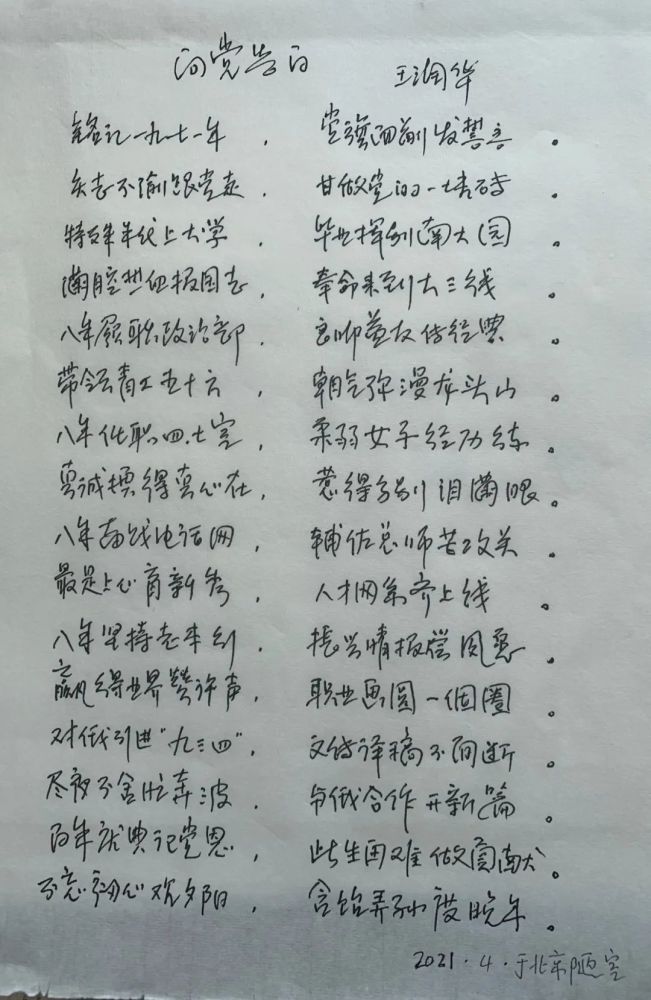 向党告白 王润华
铭记一九七一年，党旗面前发誓言。
矢志不渝跟党走，甘做党的一块砖。
特殊年代上大学，毕业挥别南大园。
满腔热血报国志，奉命来到大三线。
八年履职政治部，良师益友传经典。
带领青工五十六，朝气弥漫龙头山。
八年任职四.七室，柔弱女子经历练。
真诚换得真心在，惹得分别泪满眼。
八年有线电话网，辅佐总师苦攻关。
最是上心育新秀，人才网系齐上线。
八年坚持志未移，振兴情报偿夙愿。
赢得世界赞许声，职业画圆一個圈。
对俄引进“九三四”，文传译稿不间断。
昼夜不舍忙奔波，与俄合作开新篇。
百年庆典记党恩，此生困难做贡献。
不忘初心观夕阳，含饴弄孙度晚年。
2021.4.于北京陋室